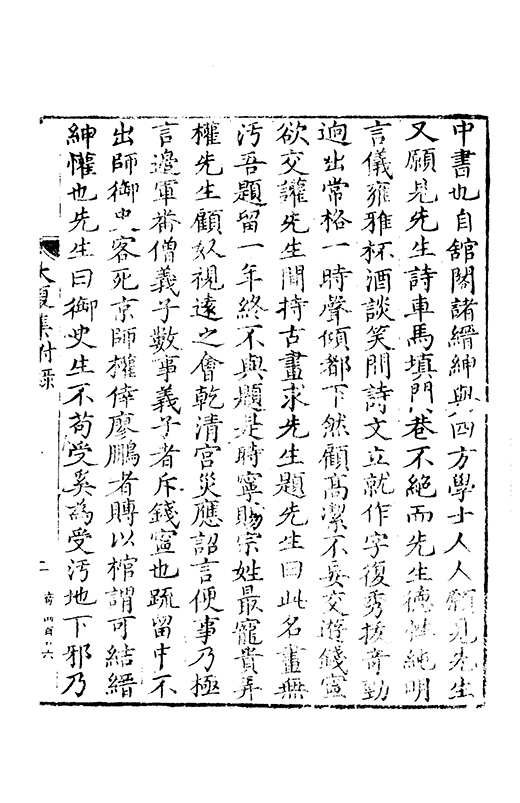 中書也自舘閣諸縉紳與四方學士人人願見先生
又願見先生詩車馬填門巷不絕而先生德性純明
言儀雍雅杯酒談笑間詩文立就作字復秀拔奇勁
逈出常格一時聲傾都下然顧高潔不妄交遊錢寧
欲交讙先生間持古畫求先生題先生曰此名畫無
汚吾題留一年終不與題是時寧賜宗姓最寵貴弄
權先生顧奴視遠之會乾清宮災應詔言便事乃極
言邊軍番僧義子數事義子者斥錢寧也疏留中不
出師御史客死京師權倖廖鵬者賻以棺謂可結縉
紳懽也先生曰御史生不苟受奚為受汚地下邪乃
大復集附录